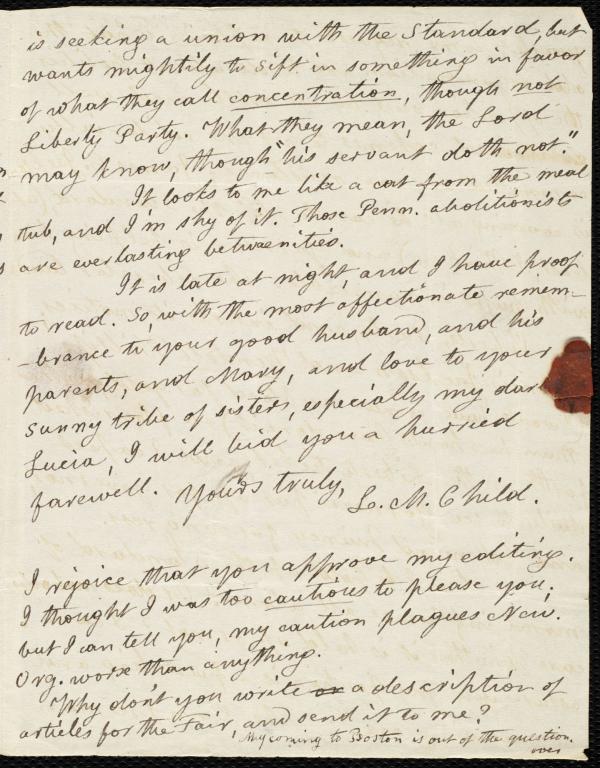 is seeking a union with the Standard, but
wants mightily to sift in something in favor
of what they call concentration, though not
Liberty Party. What they mean, the Lord
may know, though "his servant doth not."
It looks to me like a cat from the meal
tub, and I'm shy of it. Those Penn. abolitionists
are everlasting betweenities.
It is late at night, and I have proof
to read. So, with the most affectionate remem-
-brance to your good husband, and his
parents, and Mary, and love to your
sunny tribe of sisters, especially my dar
Lucia, I will bid you a hurried
farewell. Yours truly,
L. M. Child.
I rejoice that you approve my editing.
I thought I was too cautious to please you;
but I can tell you, my caution plagues New.
Org. worse than anything.
Why don't you write or a description of
articles for the Fair, and send it to me?
My coming to Boston is out of the question.
over